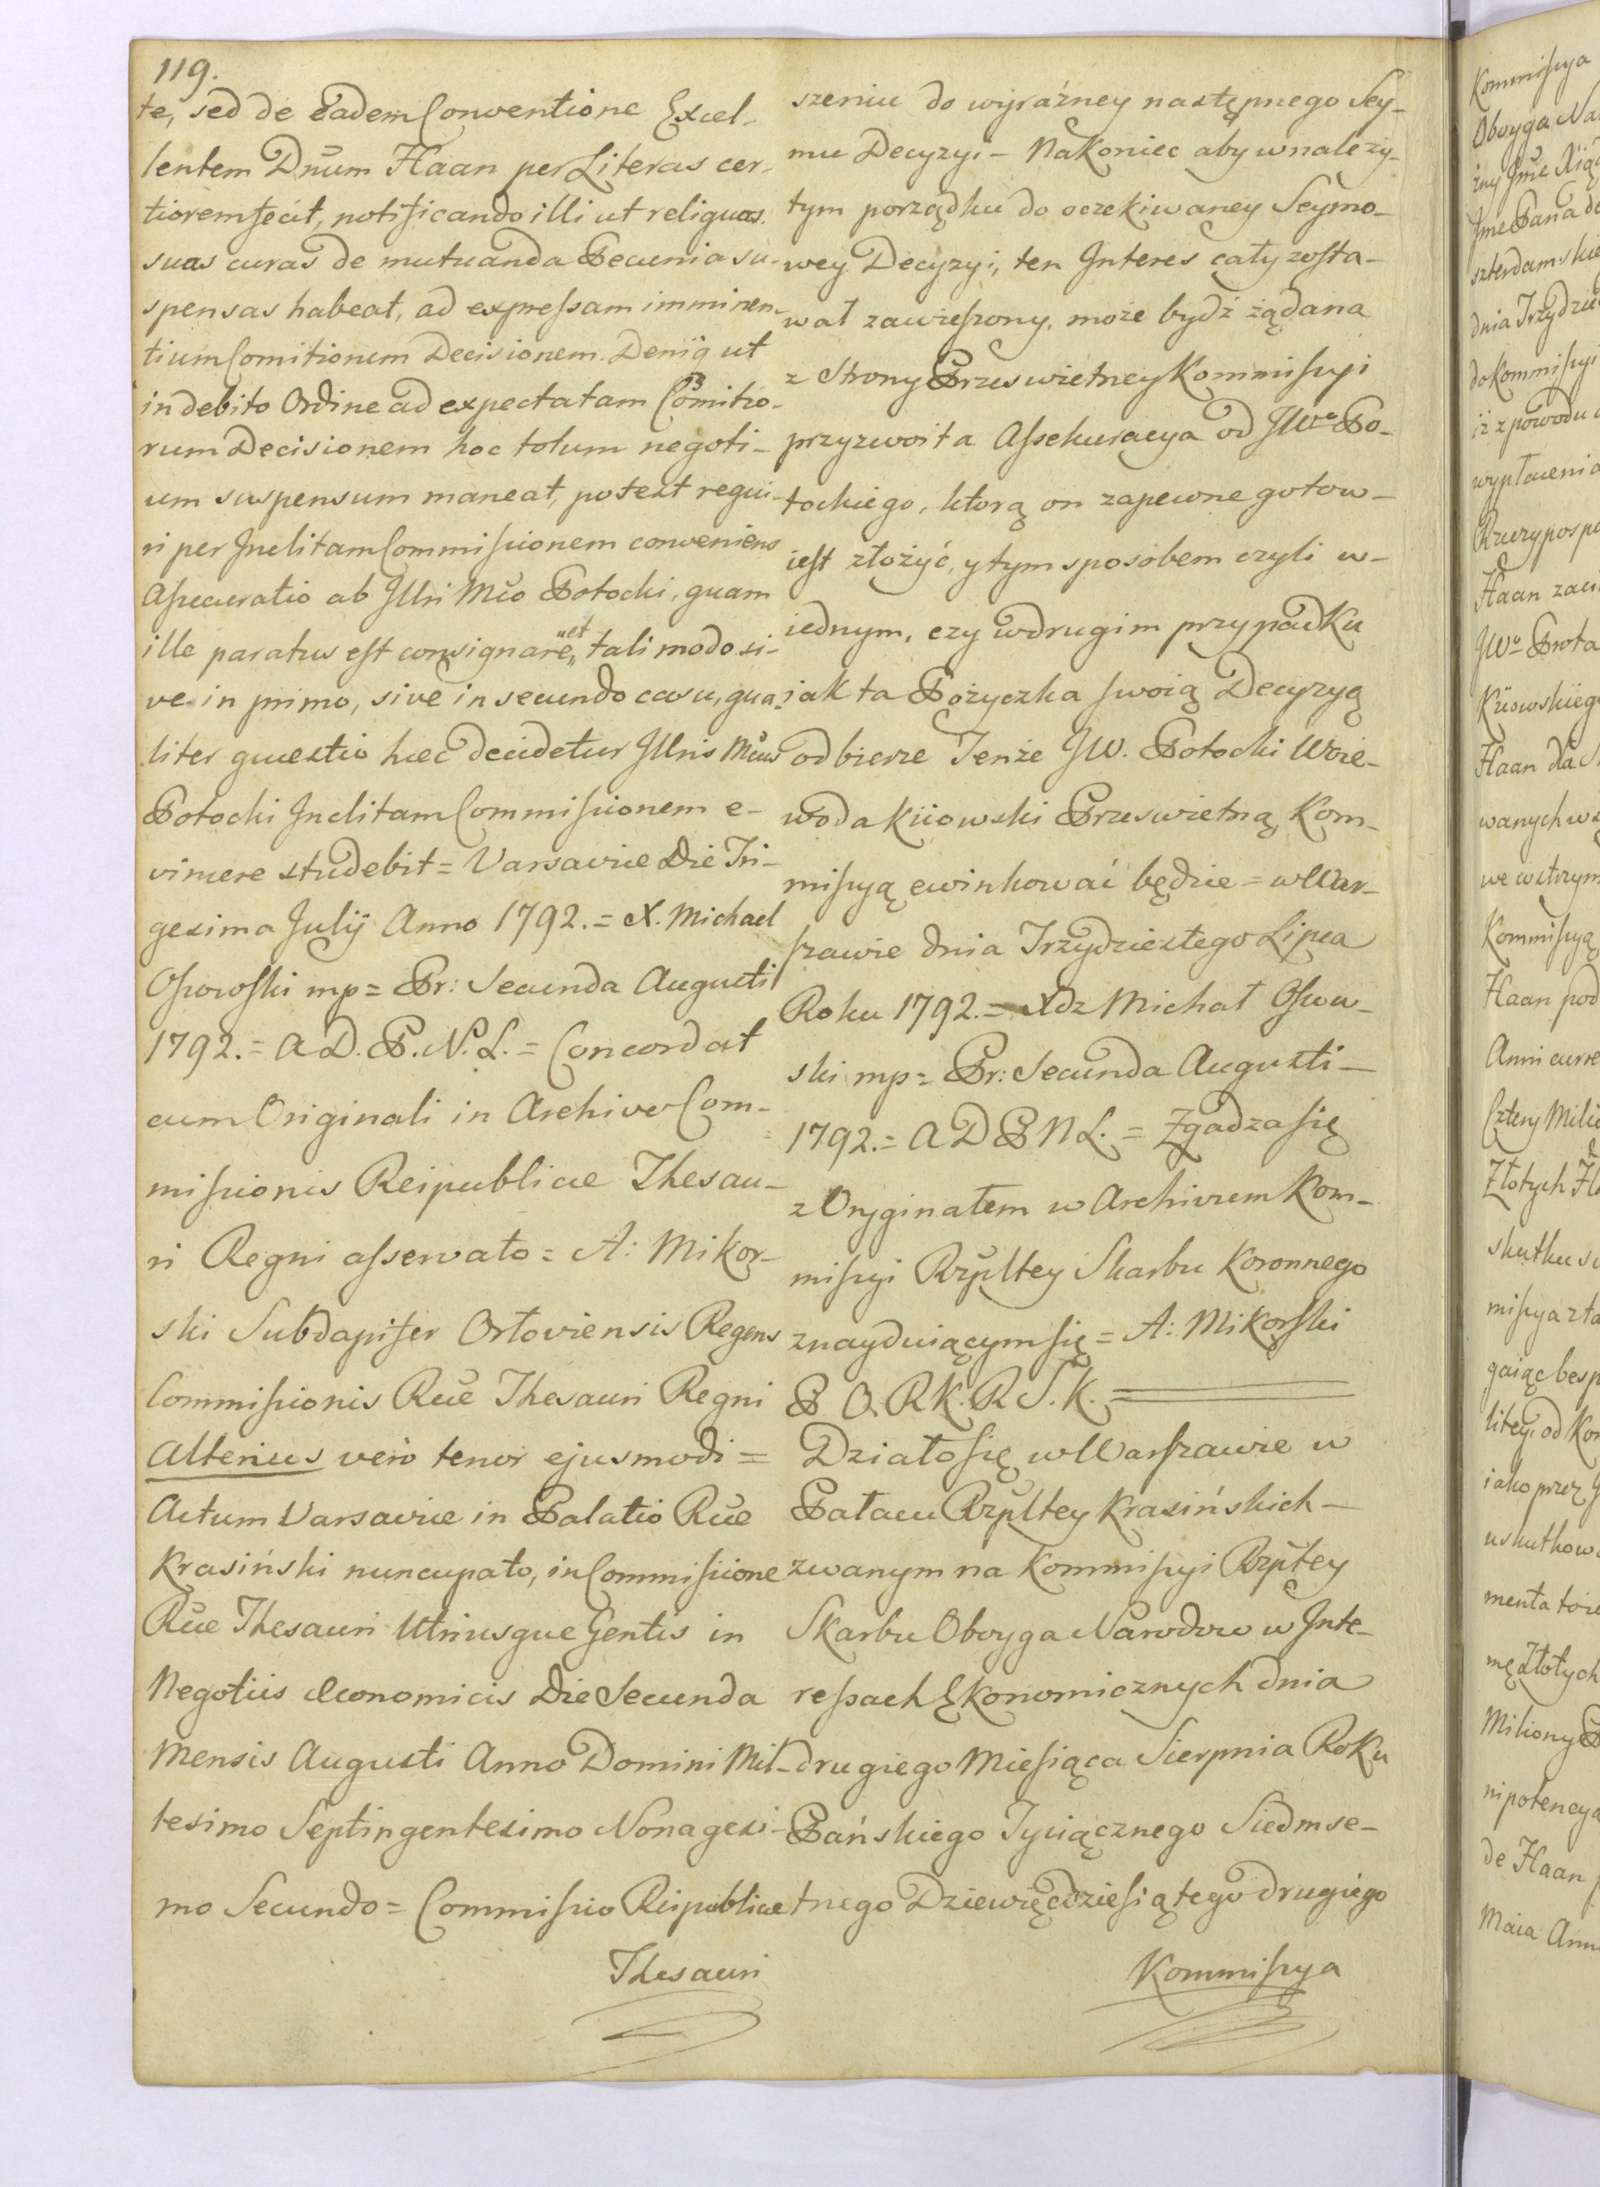 119.
te, sed de eadem Conventione Excel-
lentem Dnum Haan per Literas cer-
tiorem fecit, notificando illi ut reliquas
suas curas de mutuanda Pecunia su-
spensas habeat, ad expressam imminen-
tium Comitiorum Decisionem. Deniq ut
in debito Ordine ad expectatam Comitio-
rum Decisionem hoc totum negoti-
um suspensum maneat, potest requi-
ri per Inclitam Commissionem conveniens
Assecuratio ab Illri Mco Potocki, quam
ille paratus est consignare, et tali modo si-
ve in primo, sive in secundo casu, qua-
liter quaestio haec decidetur Illris Mcus
Potocki Inclitam Commissionem e-
vincere studebit = Varsaviae Die Tri-
gesima Julij Anno 1792. = X. Michael
Ossowski mp = Pr: Secunda Augusti
1792. = A D. P. N. L. = Concordat
cum Originali in Archivo Com-
missionis Reipublicae Thesau-
ri Regni asservato = A: Mikor-
ski Subdapifer Orłoviensis Regens
Commissionis Rcae Thesauri Regni
Alterius vero tenor ejusmodi =
Actum Varsaviae in Palatio Rcae
Krasiński nuncupato, in Commissione
Rcae Thesauri Utriusque Gentis in
Negotiis Œconomicis Die Secunda
Mensis Augusti Anno Domini Mil-
lesimo Septingentesimo Nonagesi-
mo Secundo = Commissio Reipublicae
Thesauri
szeniu do wyraźney następnego Sey-
mu Decyzyi – Nakoniec aby w należy-
tym porządku do oczekiwaney Seymo-
wey Decyzyi, ten Interes cały zosta-
wał zawieszony, może bydź żądana
z Strony Przeswietney Kommissyi
przyzwoita Assekuracya od JWo Po-
tockiego, którą on zapewne gotow –
iest złożyć, y tym sposobem czyli w –
iednym, czy w drugim przypadku
jak ta Pożyczka swoią Decyzyą
odbierze Tenże JW. Potocki Woie-
woda Kiiowski Przeswietną Kom-
missyą ewinkować będzie = w War-
szawie dnia Trzydziestego Lipca
Roku 1792. = Xdz Michał Ossow-
ski mp = Pr: Secunda Augusti –
1792. = A D P N L. = Zgadza się
z Oryginałem w Archivum Kom-
missyi Rzpltey Skarbu Koronnego
znayduiącym się = A: Mikorski
P O. R K. R S. K. =
Działo się w Warszawie w
Pałacu Rzpltey Krasińskich –
zwanym na Kommissyi Rzpltey
Skarbu Oboyga Narodow w Inte-
ressach Ekonomicznych dnia
drugiego Miesiąca Sierpnia Roku
Pańskiego Tysiącznego Siedmse-
tnego Dziewięćdziesiątego drugiego
Kommissya
Kommissya
Oboyga Na
Jme Pana de
szterdamskie
dnia Trzydzie
do Kommissyi
iż z powodu
wypłaceni
Rzeczypospo
Haan
JWo Prota
Kiiowskieg
Haan da
wanych w
we wstrzym
Kommissyą
Haan pod
Anni curre
Cztery Mili
Złotych
skutku
missya zta
gaiąc besp
litey, od Kom
iako przez
uskutkow
menta
mę Złotych
Miliony
nipotency
de Haan
Maia Ann